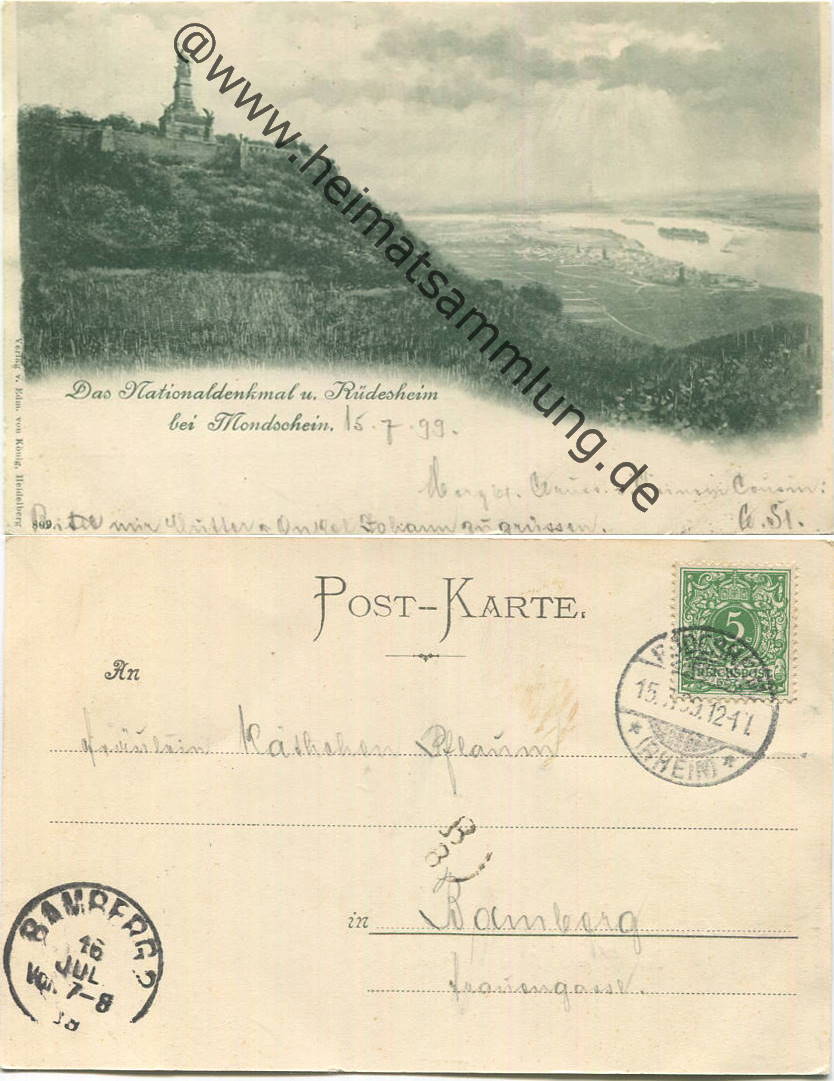 @www.heimatsammlung.de
Das Nationaldenkmal u. Rüdesheim
bei Mondschein. 15.7.99.
Verlag v. Edm. von König, Heidelberg
Cousin:
809. Bitte mir Mutter u Onkel Johann zu grüssen. C. St.
POST-KARTE.
5
REICHSPOST
RÜDESHEIM
15.7.99.12-1
* (RHEIN) *
An
Fräulein Käthchen Pflaum
in Bamberg
Frauengasse.
BAMBERG 2
16
JUL
VOR. 7-8